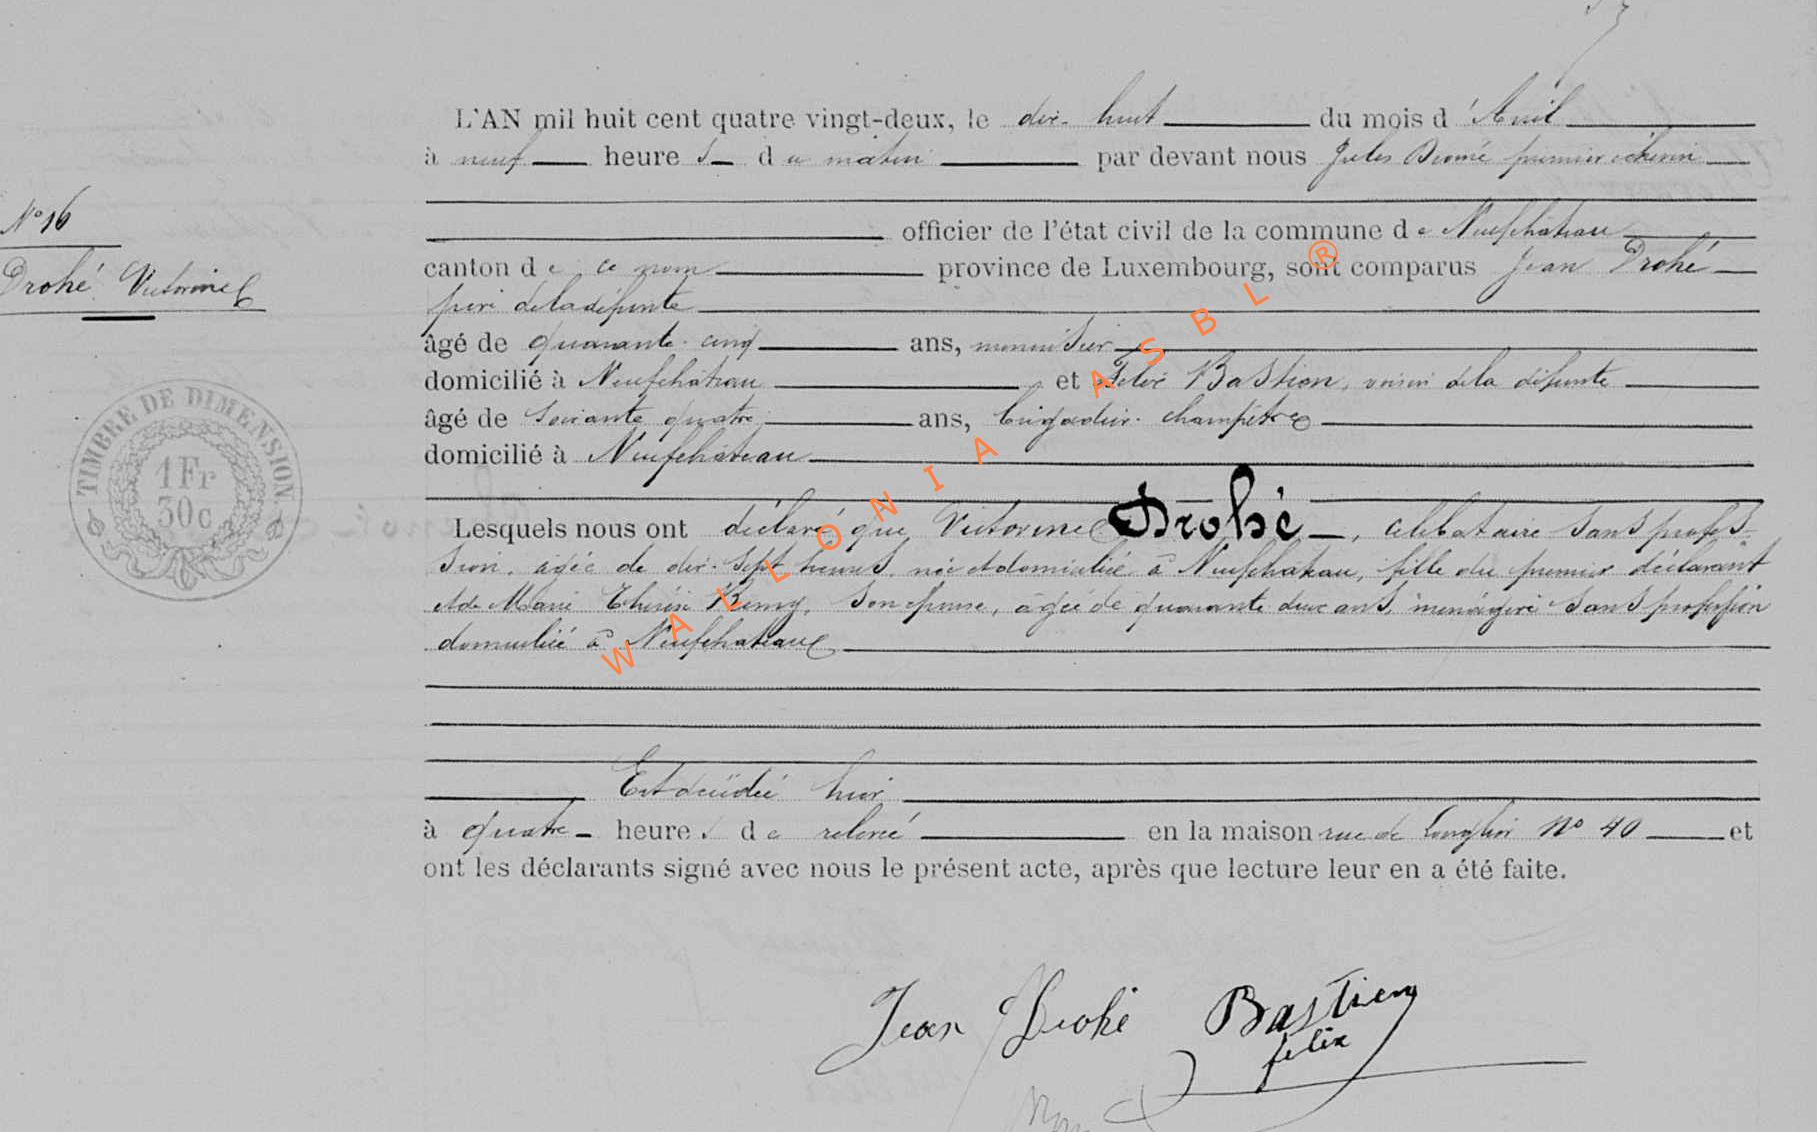 L'AN mil huit cent quatre vingt-deux, le dix-huit du mois d'Avril
à neuf heures du matin par devant nous Jules premier échevin
officier de l'état civil de la commune de Neufchâteau
N° 16
canton de ce nom province de Luxembourg, sont comparus Jean Drohé
Drohé Victorine
père de la défunte
âgé de quarante-cinq ans, menuisier
domicilié à Neufchâteau et Félix Bastien, voisin de la défunte
âgé de soixante quatre ans, brigadier champêtre
domicilié à Neufchâteau
TIMBRE DE DIMENSION
1 Fr
30c
Lesquels nous ont déclaré que Victorine Drohé, célibataire sans profes-
sion, âgée de dix-sept heures, née et domiciliée à Neufchâteau, fille du premier déclarant
et de Marie Thérèse Remy, son épouse, âgée de quarante deux ans, ménagère sans profession
domiciliée à Neufchâteau
Est décédée hier
à quatre heures de relevée en la maison rue de Longlier N° 40 et
ont les déclarants signé avec nous le présent acte, après que lecture leur en a été faite.
Jean Drohé Bastien
felix
WALLONIA ASBL ®